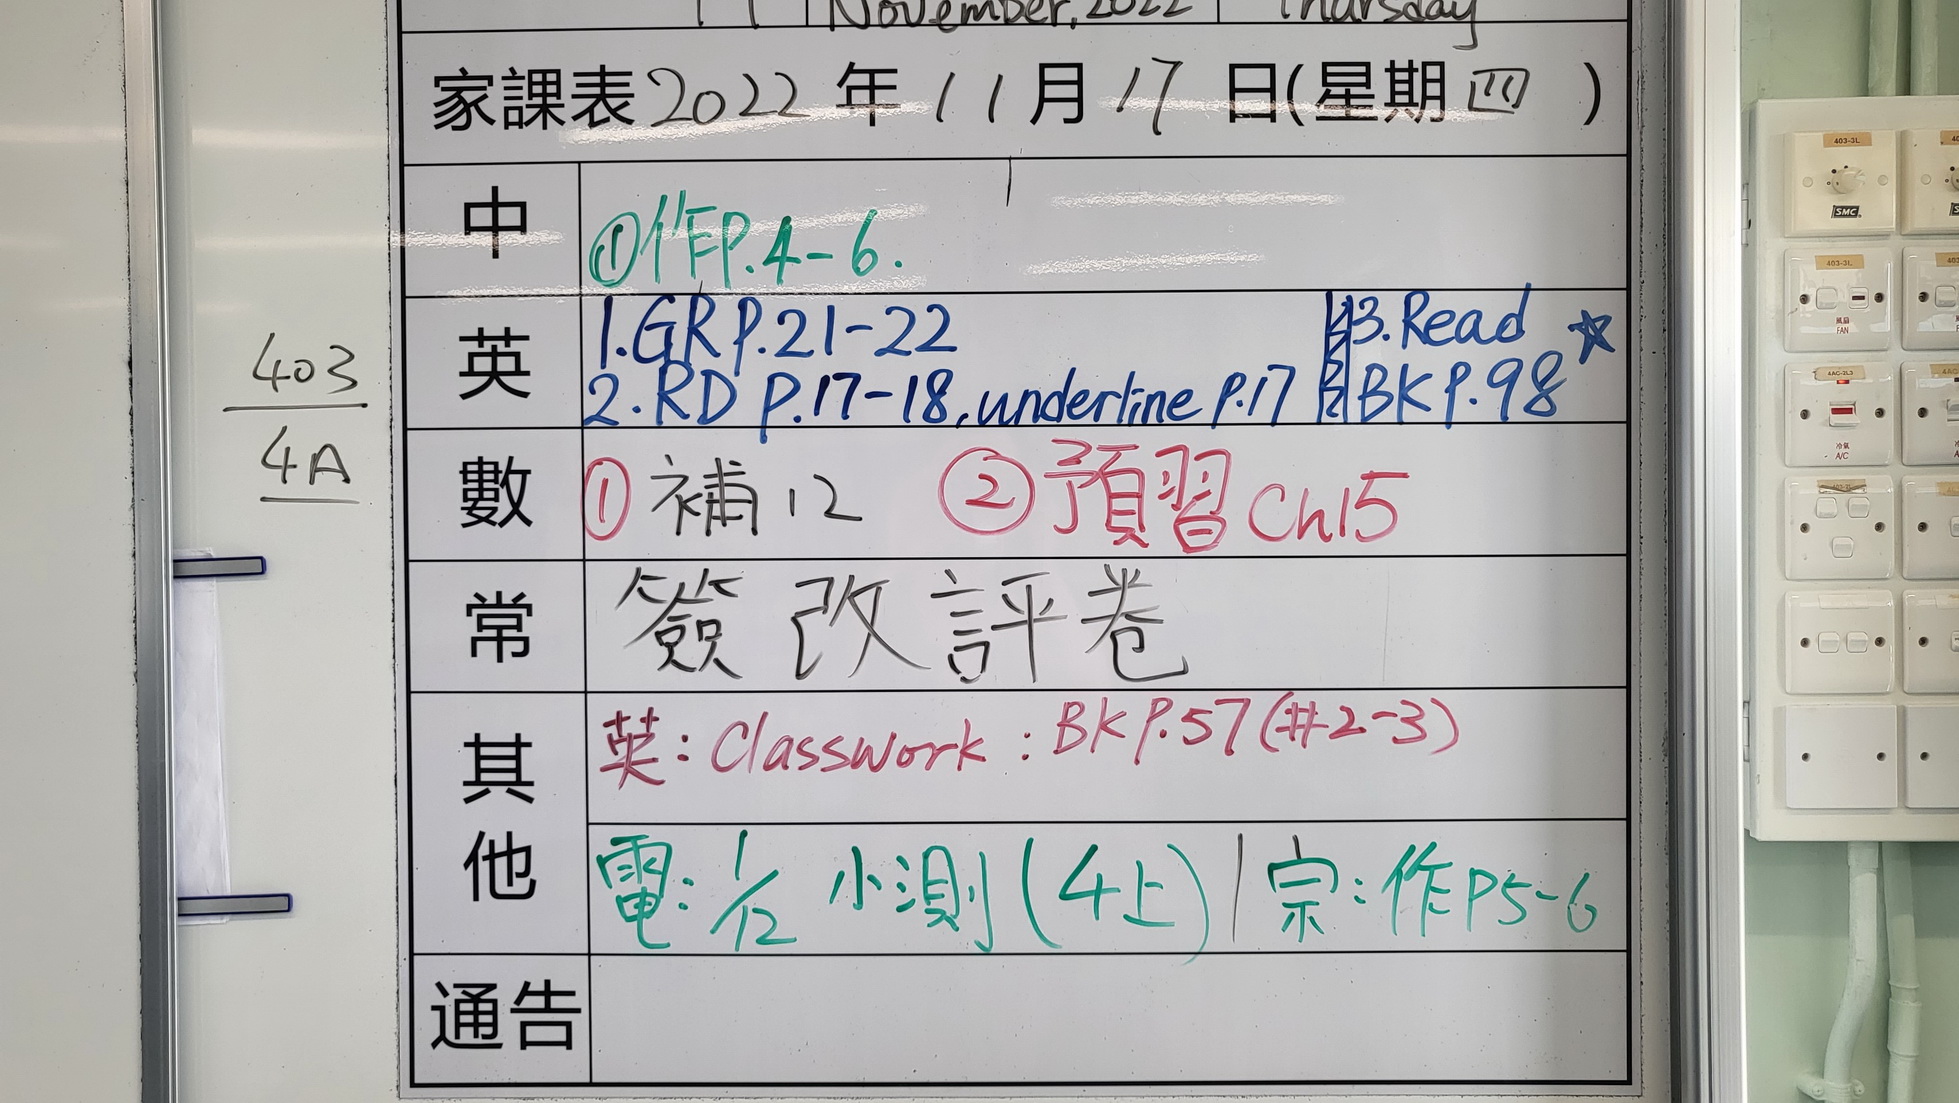 November, 2022 Thursday
家課表 2022 年 11 月 17 日(星期 四 )
中 ①作P.4-6.
英 1.GR P.21-22
2.RD P.17-18, underline P.17
3.Read ☆
BK P.98
403
4A
數 ① 補12 ② 預習 Ch15
常 簽改評卷
其他 英: Classwork : BK P.57 (#2-3)
電: 1/12 小測 (4上) | 宗: 作P5-6
通告
403-3L
SMC
403-3L
風扇
FAN
4AC-3L3
冷氣
A/C